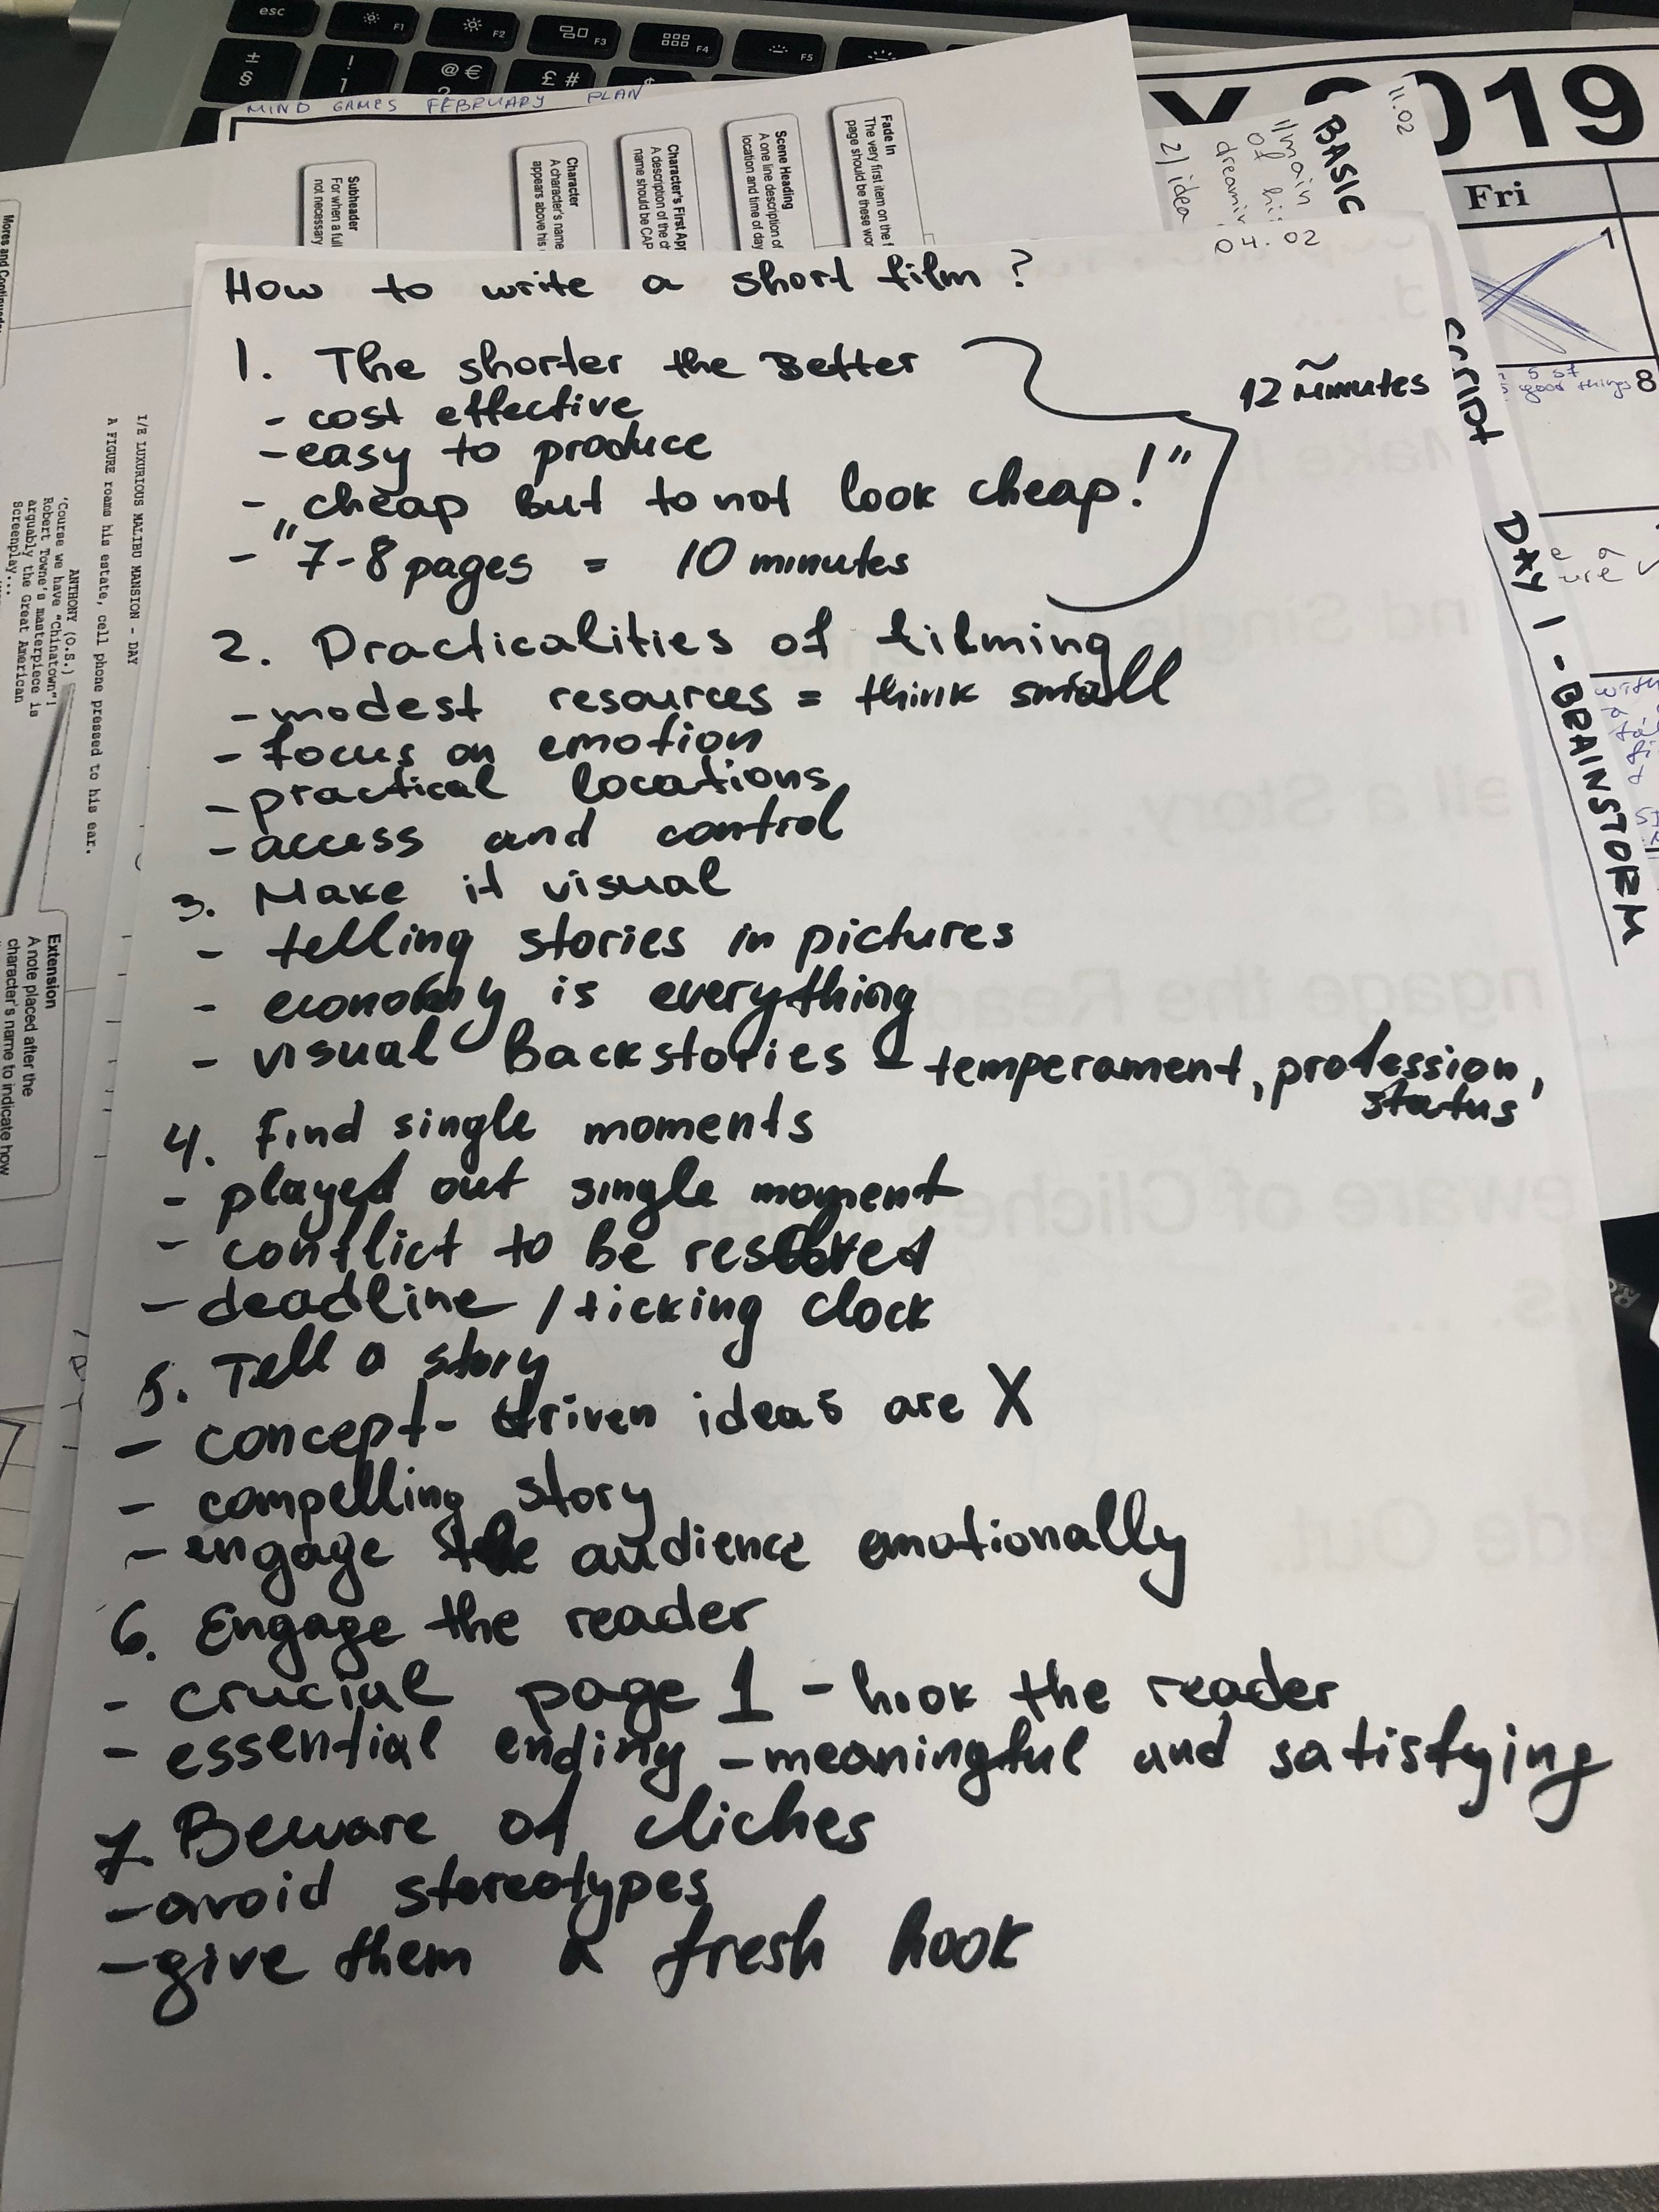 esc
F1
F2
F3
F4
F5
±
§
!
1
@ €
2
£ #
$
MIND GAMES FEBRUARY PLAN
Subheader
For when a full
not necessary
Character
A character's name
appears above his
Character's First App
A description of the ch
name should be CAP
Scene Heading
A one line description of
location and time of day
Fade In
The very first item on the f
page should be these wor
2019
Fri
1
8
good things
11.02
BASIC
SCRIPT
1/ main
of his
dreamin
2/ idea
04.02
DAY 1 - BRAINSTORM
How to write a short film?
1. The shorter the Better
- cost effective
- easy to produce
- „cheap But to not look cheap!"
- 7-8 pages = 10 minutes
~
12 minutes
2. Practicalities of filming
- modest resources = think small
- focus on emotion
- practical locations
- access and control
3. Make it visual
- telling stories in pictures
- economy is everything
- visual Backstories - temperament, profession,
status
4. Find single moments
- played out single moment
- conflict to be resolved
- deadline / ticking clock
5. Tell a story
- concept-driven ideas are X
- compelling story
- engage the audience emotionally
6. Engage the reader
- crucial page 1 - hook the reader
- essential ending - meaningful and satisfying
7. Beware of cliches
- avoid stereotypes
- give them a fresh hook
I/E LUXURIOUS MALIBU MANSION - DAY
A FIGURE roams his estate, cell phone pressed to his ear.
ANTHONY (O.S.)
'Course we have "Chinatown"!
Robert Towne's masterpiece is
arguably the Great American
Screenplay...
Extension
A note placed after the
character's name to indicate how